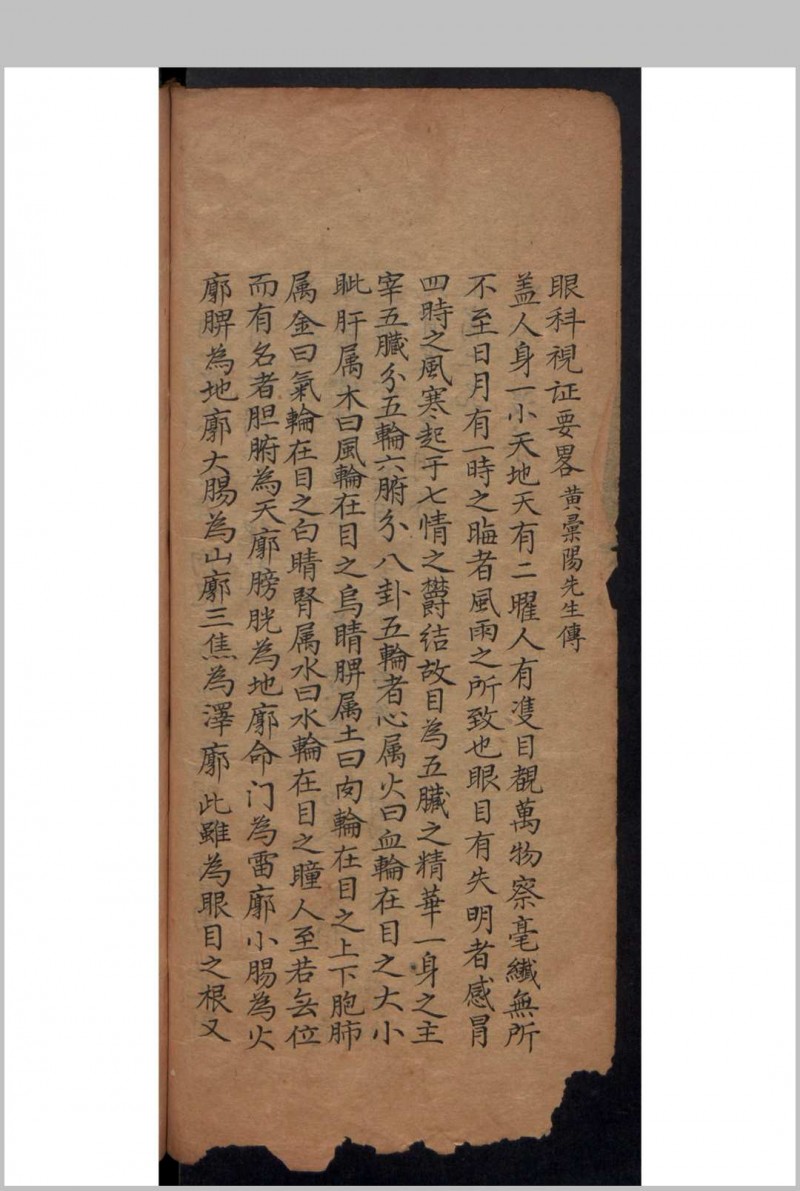 眼科視证要畧 黄彙陽先生傳
盖人身一小天地天有二曜人有隻目覩萬物察毫纖無所
不至日月有一時之晦者風雨之所致也眼目有失明者感冒
四時之風寒起于七情之欝结故目為五臟之精華一身之主
宰五臟分五輪六腑分八卦五輪者心属火曰血輪在目之大小
眦肝属木曰風輪在目之烏睛脾属土曰肉輪在目之上下胞肺
属金曰氣輪在目之白睛腎属水曰水輪在目之瞳人至若無位
而有名者胆腑為天廓膀胱為地廓命门為雷廓小腸為火
廓脾為地廓大腸為山廓三焦為澤廓此雖為眼目之根又